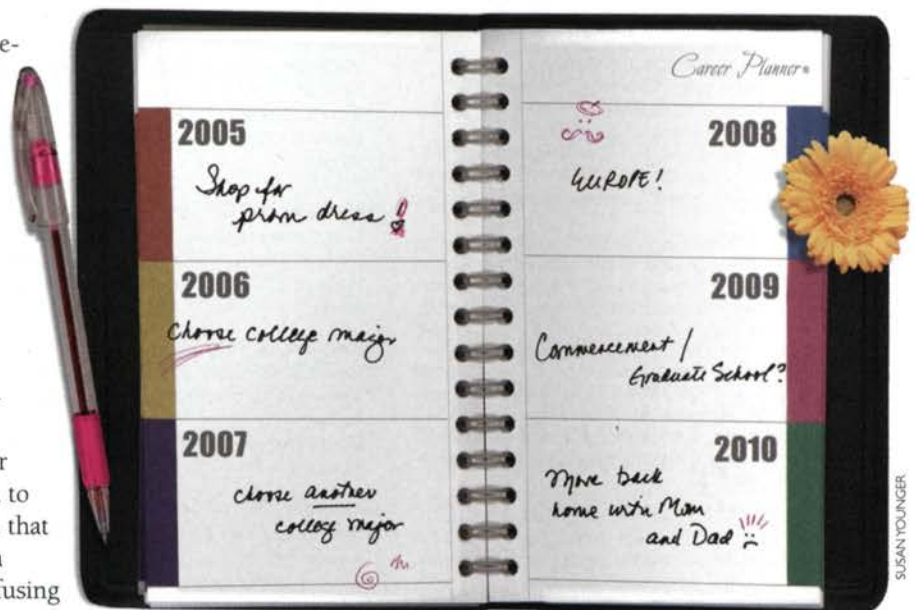 e-
r
to
that
n
fusing
2005
Shop for
prom dress!
2006
Choose college major
2007
choose another
college major
Career Planner®
2008
EUROPE!
2009
Commencement/
Graduate School?
2010
Move back
home with Mom
and Dad
SUSAN YOUNGER